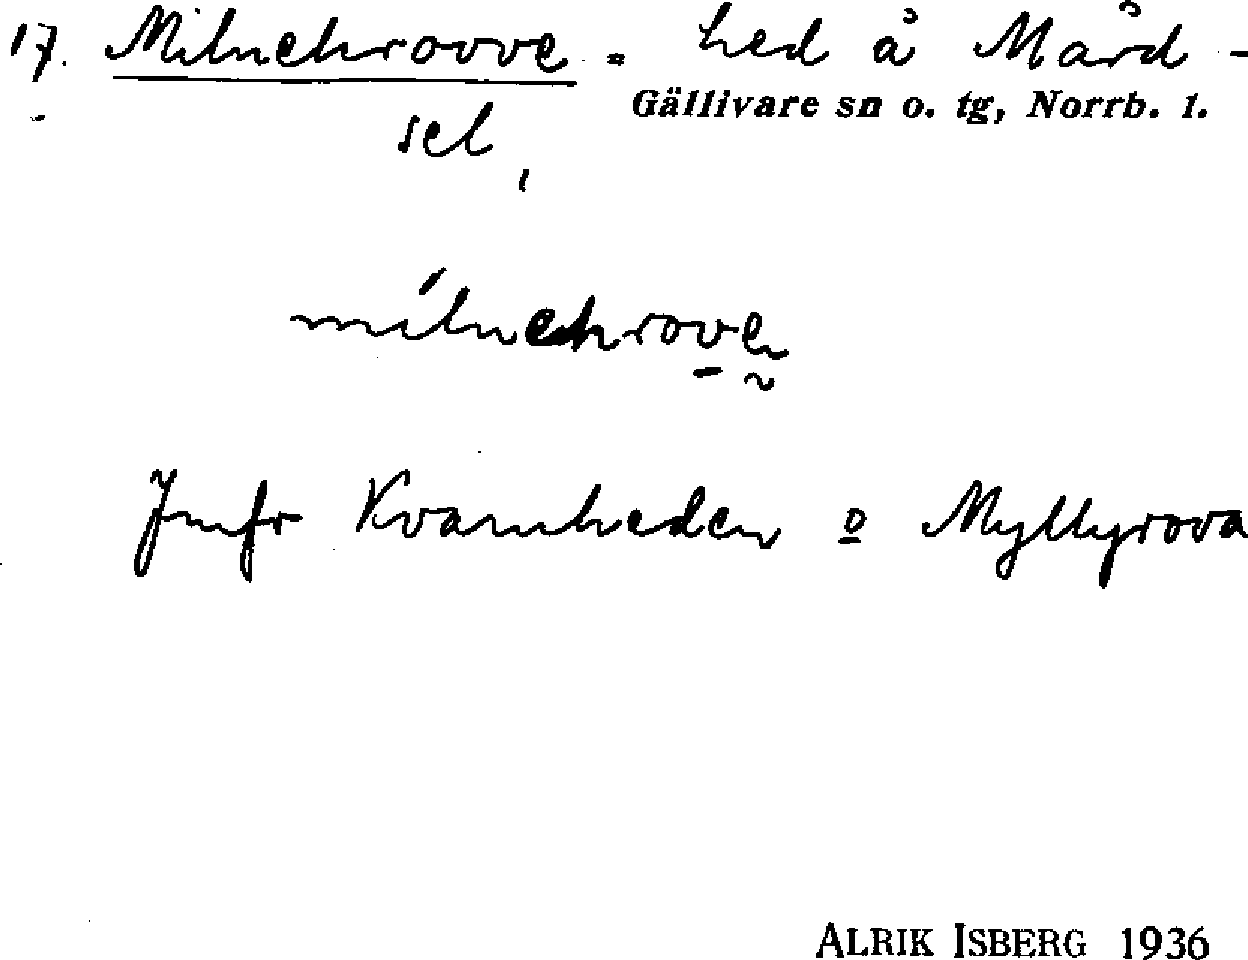 17. Milnehrovve = hed å Mård-
Gällivare sn o. tg, Norrb. 1.
sel,
milnehrove
Jmfr Kvarnheden o Myllyrova
ALRIK ISBERG 1936